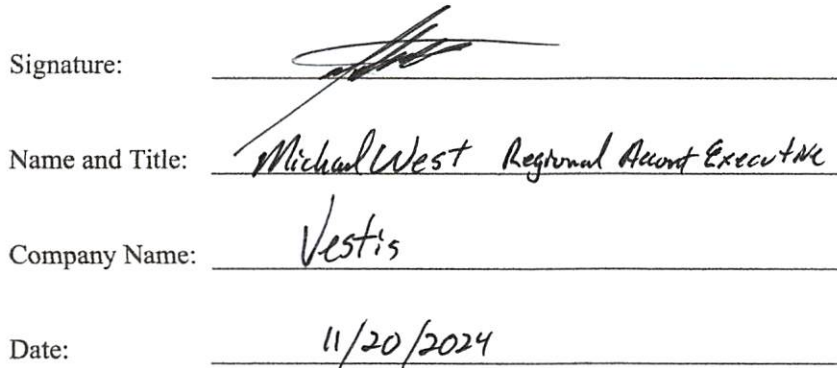 Signature:
Name and Title: Michael West Regional Account Executive
Company Name: Vestis
Date: 11/20/2024